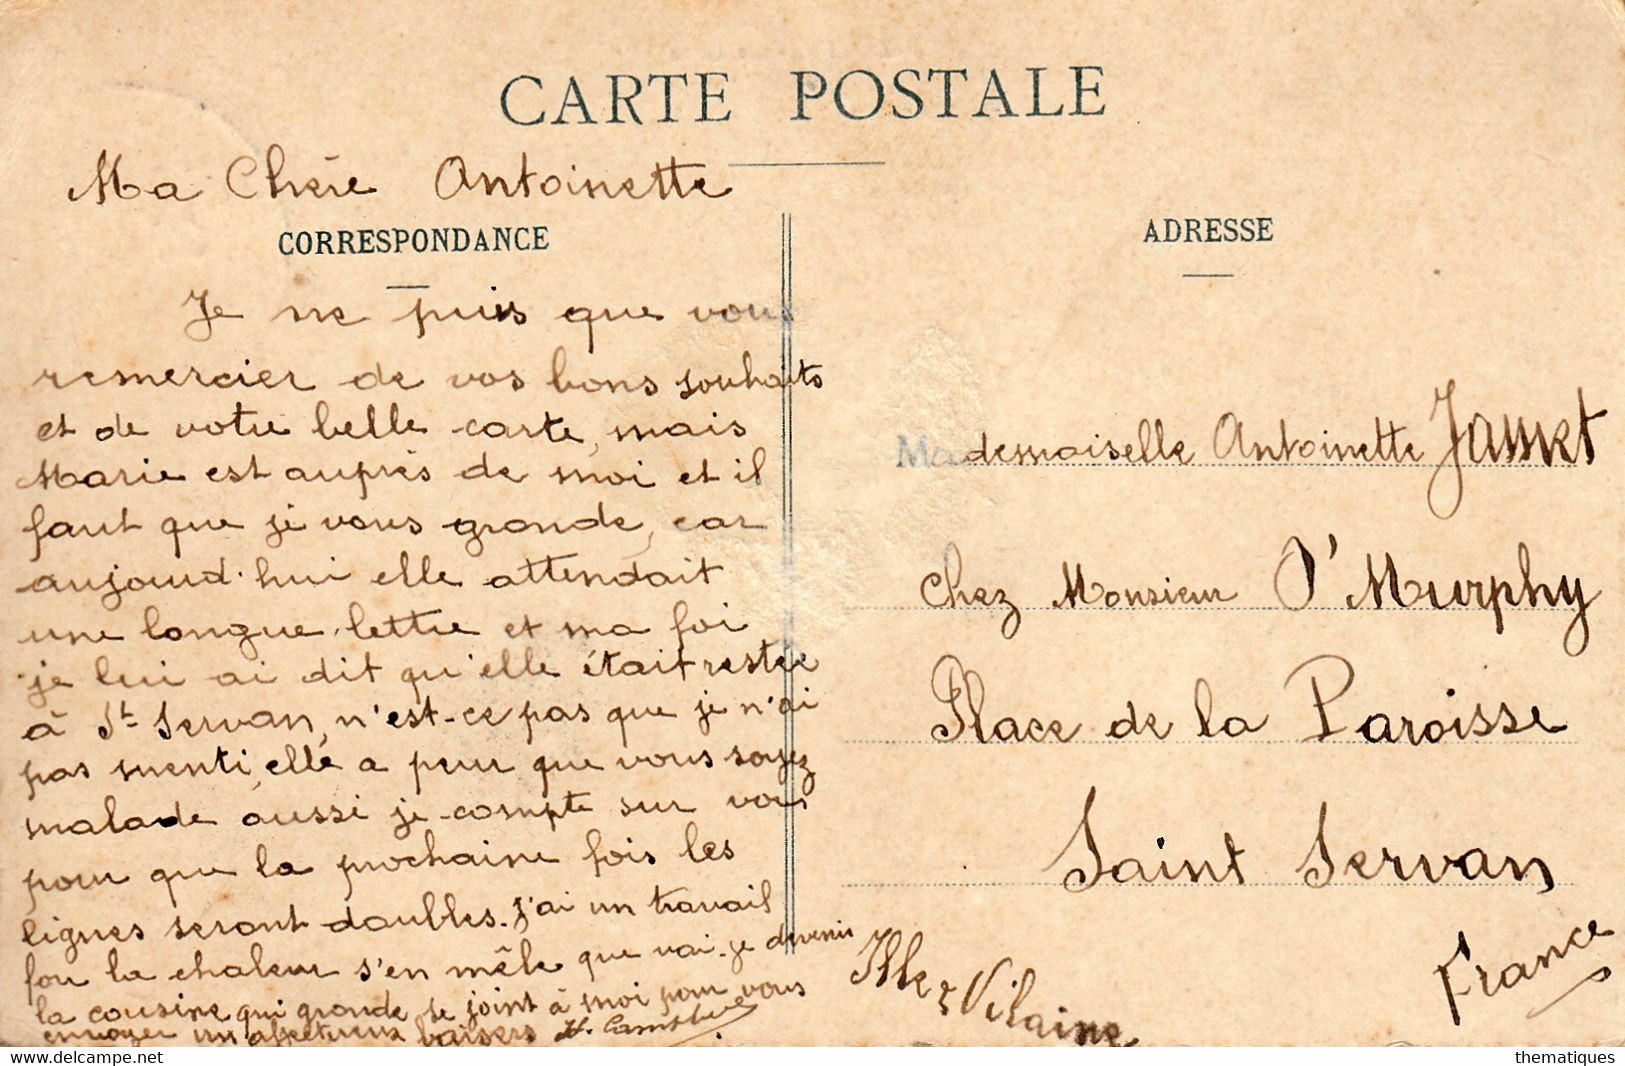 CARTE POSTALE
Ma Chère Antoinette
CORRESPONDANCE
Je ne puis que vous
remercier de vos bons souhaits
et de votre belle carte, mais
Marie est auprès de moi et il
faut que je vous gronde, car
aujourd'hui elle attendait
une longue lettre et ma foi
je lui ai dit qu'elle était restée
à St Servan, n'est-ce pas que je n'ai
pas menti, elle a peur que vous soyez
malade aussi je compte sur vous
pour que la prochaine fois les
lignes seront doubles. J'ai un travail
fou la chaleur s'en mêle que vai-je devenir
la cousine qui gronde se joint à moi pour vous
envoyer un affectueux baisers H.
ADRESSE
Mademoiselle Antoinette
Chez Monsieur O'Murphy
Place de la Paroisse
Saint Servan
Ille & Vilaine
France
www.delcampe.net
thematiques